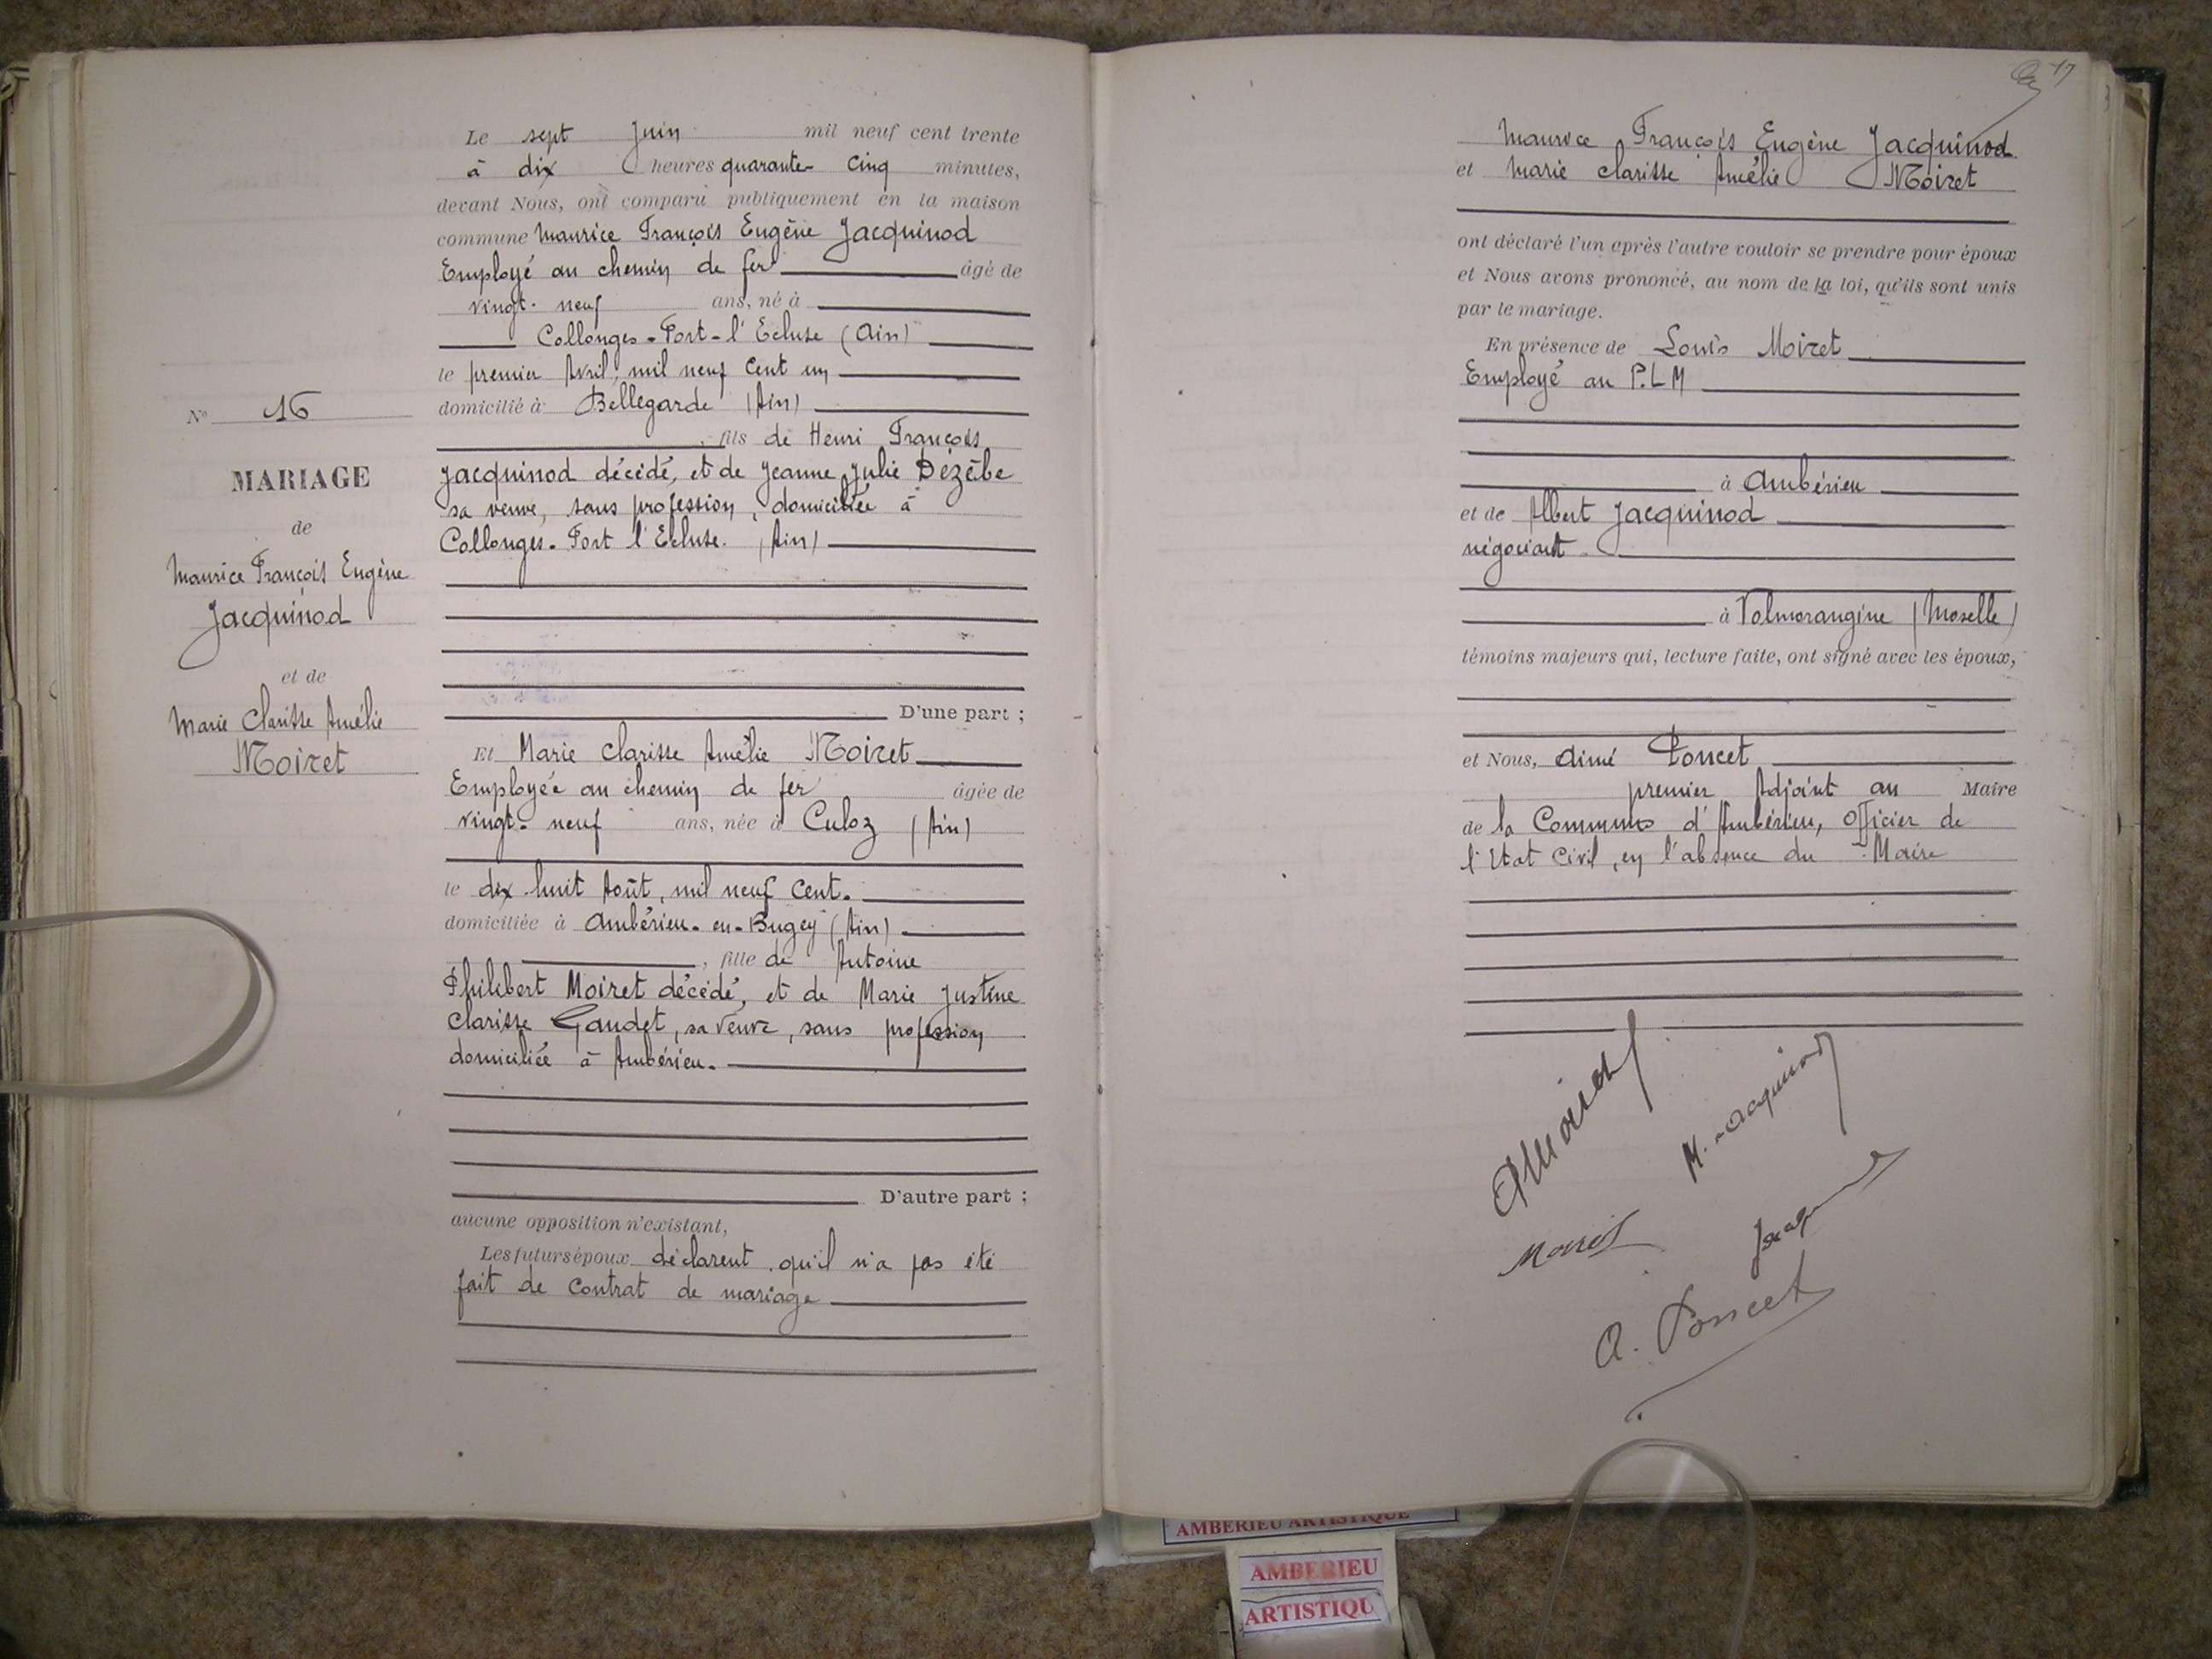 Le sept Juin mil neuf cent trente
à dix heures quarante-cinq minutes,
devant Nous, ont comparu publiquement en la maison
commune Maurice François Eugène Jacquinod
Employé au chemin de fer âgé de
vingt-neuf ans, né à
Collonges-Fort-l'Ecluse (Ain)
le premier Avril, mil neuf cent un
domicilié à Bellegarde (Ain)
, fils de Henri François
Jacquinod décédé, et de Jeanne Julie Dézèbe
sa veuve, sans profession, domiciliée à
Collonges-Fort l'Ecluse. (Ain)
D'une part ;
N° 16
MARIAGE
de
Maurice François Eugène
Jacquinod
et de
Marie Clarisse Amélie
Moiret
Et Marie Clarisse Amélie Moiret
Employée au chemin de fer âgée de
vingt-neuf ans, née à Culoz (Ain)
le dix-huit Août, mil neuf cent.
domiciliée à Ambérieu-en-Bugey (Ain)
, fille de Antoine
Philibert Moiret décédé, et de Marie Justine
Clarisse Gaudet, sa veuve, sans profession
domiciliée à Ambérieu.
D'autre part ;
aucune opposition n'existant,
Les futurs époux déclarent qu'il n'a pas été
fait de contrat de mariage
17
Maurice François Eugène Jacquinod
et Marie Clarisse Amélie Moiret
ont déclaré l'un après l'autre vouloir se prendre pour époux
et Nous avons prononcé, au nom de la loi, qu'ils sont unis
par le mariage.
En présence de Louis Moiret
Employé au P.L.M
à Ambérieu
et de Albert Jacquinod
négociant
à Volmerangine (Moselle)
témoins majeurs qui, lecture faite, ont signé avec les époux,
et Nous, Aimé Poncet
premier Adjoint au Maire
de la Commune d'Ambérieu, Officier de
l'Etat Civil, en l'absence du Maire
AMoiret
M. Jacquinod
Moiret
Jacquinod
A. Poncet
AMBERIEU ARTISTIQUE
AMBERIEU
ARTISTIQU